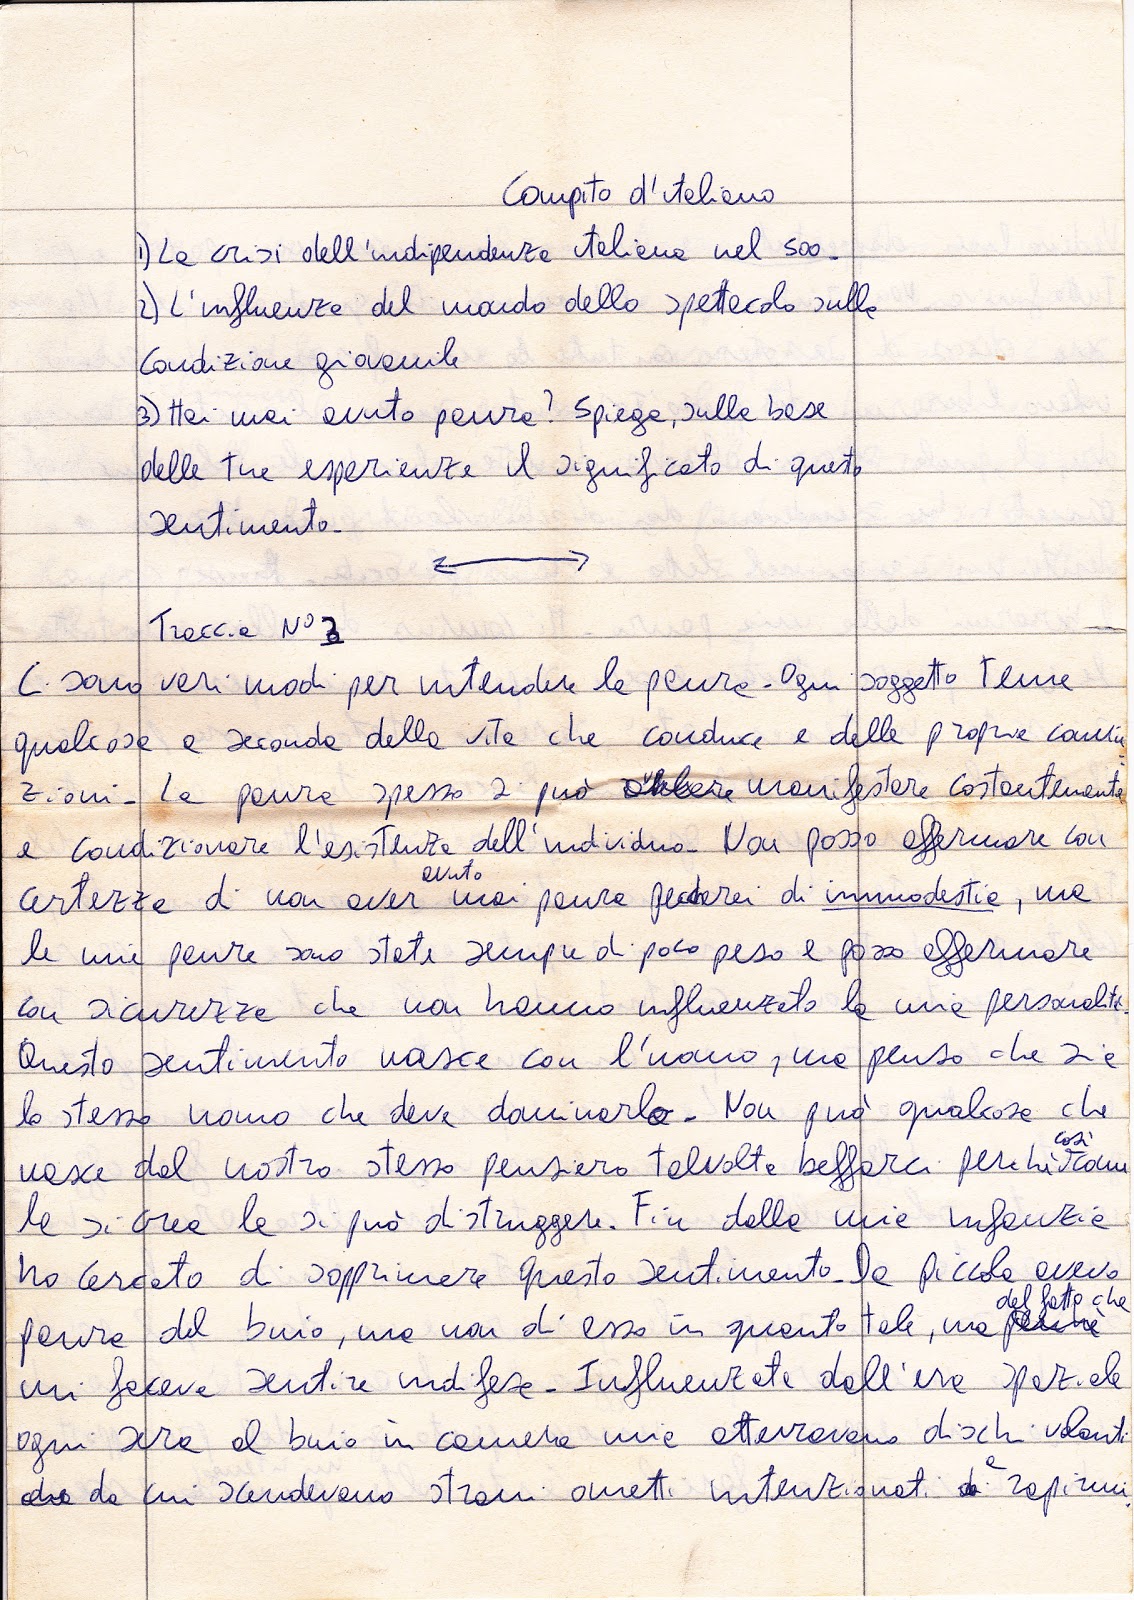 Compito d'italiano
1) La crisi dell'indipendenza italiana nel 500.
2) L'influenza del mondo dello spettacolo sulla
condizione giovanile
3) Hai mai avuto paura? Spiega, sulla base
delle tue esperienze il significato di questo
sentimento.
Traccia N° 3
Ci sono vari modi per intendere la paura. Ogni soggetto teme
qualcosa a seconda della vita che conduce e delle proprie convin
zioni. La paura spesso si può manifestare costantemente
e condizionare l'esistenza dell'individuo. Non posso affermare con
avuto
certezza di non aver mai paura peccherei di immodestia, ma
le mie paure sono state sempre di poco peso e posso affermare
con sicurezza che non hanno influenzato la mia personalità.
Questo sentimento nasce con l'uomo, ma penso che sia
lo stesso uomo che deve dominarlo. Non può qualcosa che
così
nasce dal nostro stesso pensiero talvolta beffarci perché come
la si crea la si può distruggere. Fin dalla mia infanzia
ho cercato di sopprimere questo sentimento. Da piccola avevo
del fatto che
paura del buio, ma non di esso in quanto tale, ma perché
mi faceva sentire indifesa. Influenzata dall'era spaziale
ogni sera al buio in camera mia atterravano dischi volanti
che da cui scendevano strani ometti intenzionati a rapirmi.